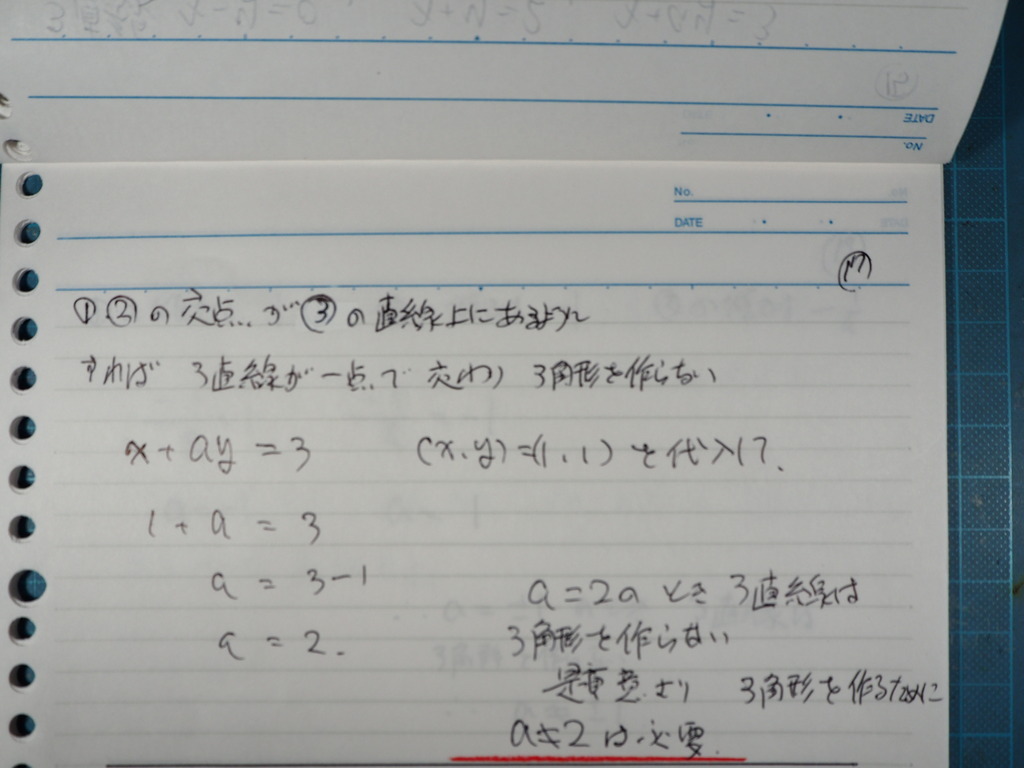 No.
DATE
No.
DATE
⑰
①②の交点が③の直線上にあるように
すれば 3直線が一点で交わり 3角形を作らない
x+ay=3 (x,y)=(1,1)を代入して、
1+a=3
a=3-1
a=2.
a=2のとき 3直線は
3角形を作らない
題意より 3角形を作るために
a≠2は必要.